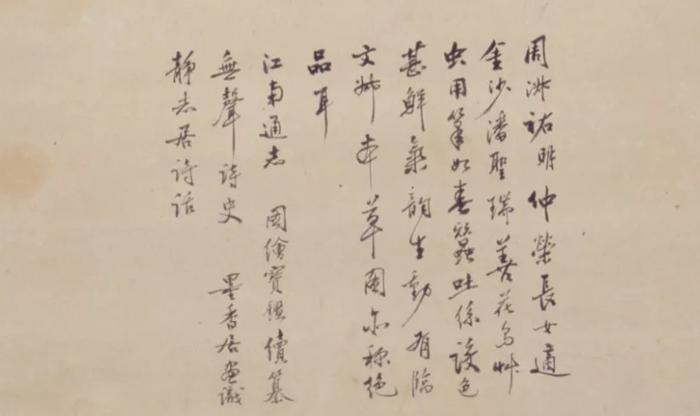 周淑祐明仲榮長女適
金沙潘聖瑞善花鳥艸
虫用筆如春蠶吐絲設色
甚鮮氣韵生動有臨
文姊本草圖亦称絶
品耳
江南通志 圖繪寶鑑續纂
無聲詩史 墨香居画識
靜志居詩話